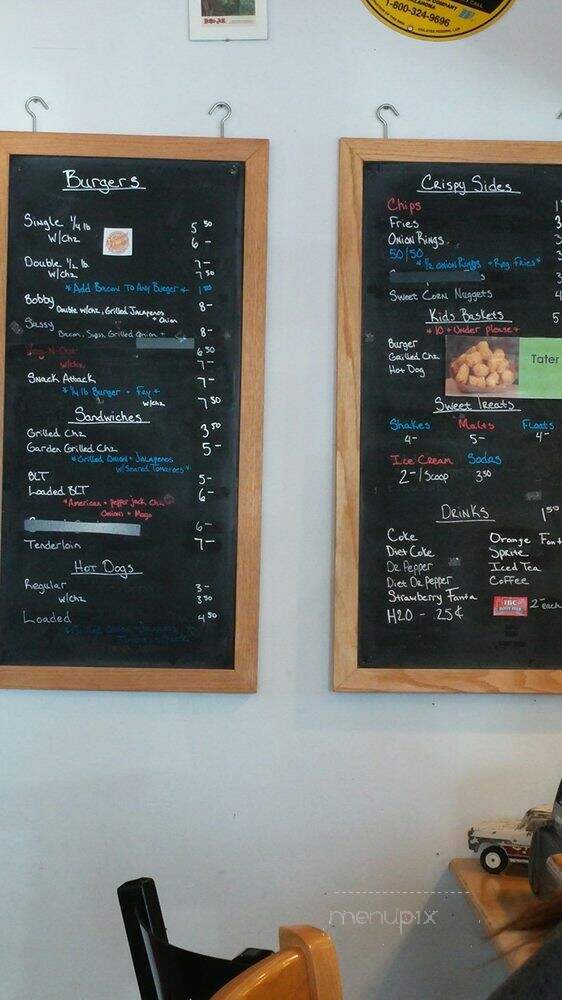 COMPANY
1-800-324-9696
Burgers
Single 1/4 lb 5 50
w/Chz 6 -
Double 1/2 lb. 7 -
w/Chz 7 50
*Add Bacon To Any Burger * 1 50
Bobby 8 -
Double w/chz, Grilled Jalapenos
+ Onion
Sassy 8 -
Bacon, Swiss, Grilled Onion +
6 50
w/Chz 7 -
Snack Attack 7 -
*1/4 lb Burger + Fry*
w/chz 7 50
Sandwiches
Grilled Chz 3 50
Garden Grilled Chz 5 -
*Grilled Onion + Jalapenos
w/Seared Tomatoes*
BLT 5 -
Loaded BLT 6 -
*American + pepper jack Chz
Onions + Mayo
6 -
Tenderloin 7 -
Hot Dogs
Regular 3 -
w/chz 3 50
Loaded 4 50
Crispy Sides
Chips
Fries
Onion Rings
50/50
*1/2 Onion Rings + Reg. Fries*
Sweet Corn Nuggets 4
Kids Baskets 5
*10 + Under please*
Burger
Grilled Chz
Hot Dog
Tater
Sweet Treats
Shakes Malts Floats
4- 5- 4-
Ice Cream Sodas
2-/Scoop 3 50
Drinks 1 50
Coke Orange Fant
Diet Coke Sprite
Dr Pepper Iced Tea
Diet Dr Pepper Coffee
Strawberry Fanta
H2O - .25¢
IBC
ROOT BEER
2- each
menupix